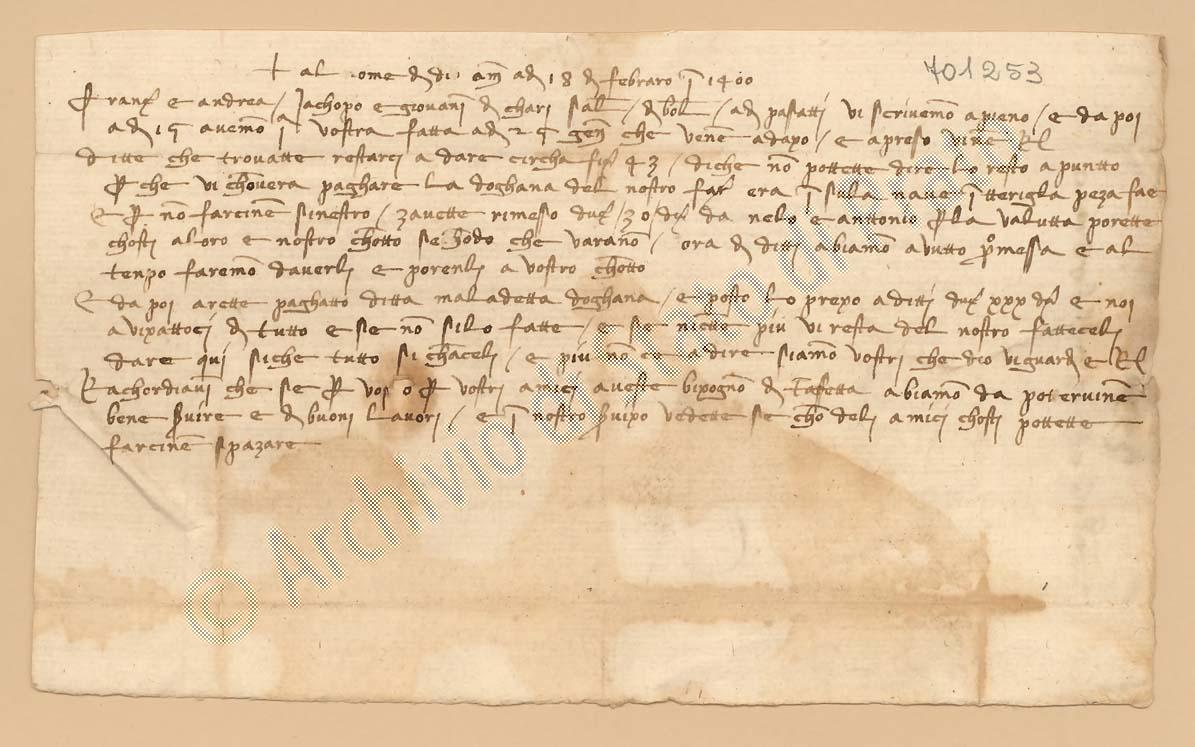 701253
+ al nome de di am adi 18 di febraro i 1400
Franco e andrea / Jachopo e giovani di chari sal / di bol / adi passatti vi scrivemo apieno / e da poi
adi 15 avemo i vostra fatta adi 25 gen che vene adapo / e apreso vine Rl
ditte che trovatte restarci a dare circha 43 / di che no pottette dire lo resto a puntto
P che vi chovera paghare la doghana del nostro era i sula nave peza
E P no farcine sinestro / avette rimesso duc 30 da nelo e anttonio P la valutta porette
chosti a loro e nostro chotto sechodo che varano / ora di ditti abiamo avutto promessa e al
tenpo faremo daverli e porenli a vostro chotto
E da poi arette paghatto ditta maladetta doghana / e posto lo prexo a ditti duc xxx e noi
avixattoci di tutto e se no silo fatte / e se niette piu vi resta del nostro fattecelj
dare qui siche tutto si chacelj / e piu no ce a dire siamo vostri che dio viguardi e Rl
Rachordiavi che se P voi o P vostri amici aveste bixogno di Tafetta abiamo da potervine
bene servire e di buoni lavori / e i nostro vedette se cho deli amici chosti pottette
farcine spazare
© Archivio di Stato di Prato